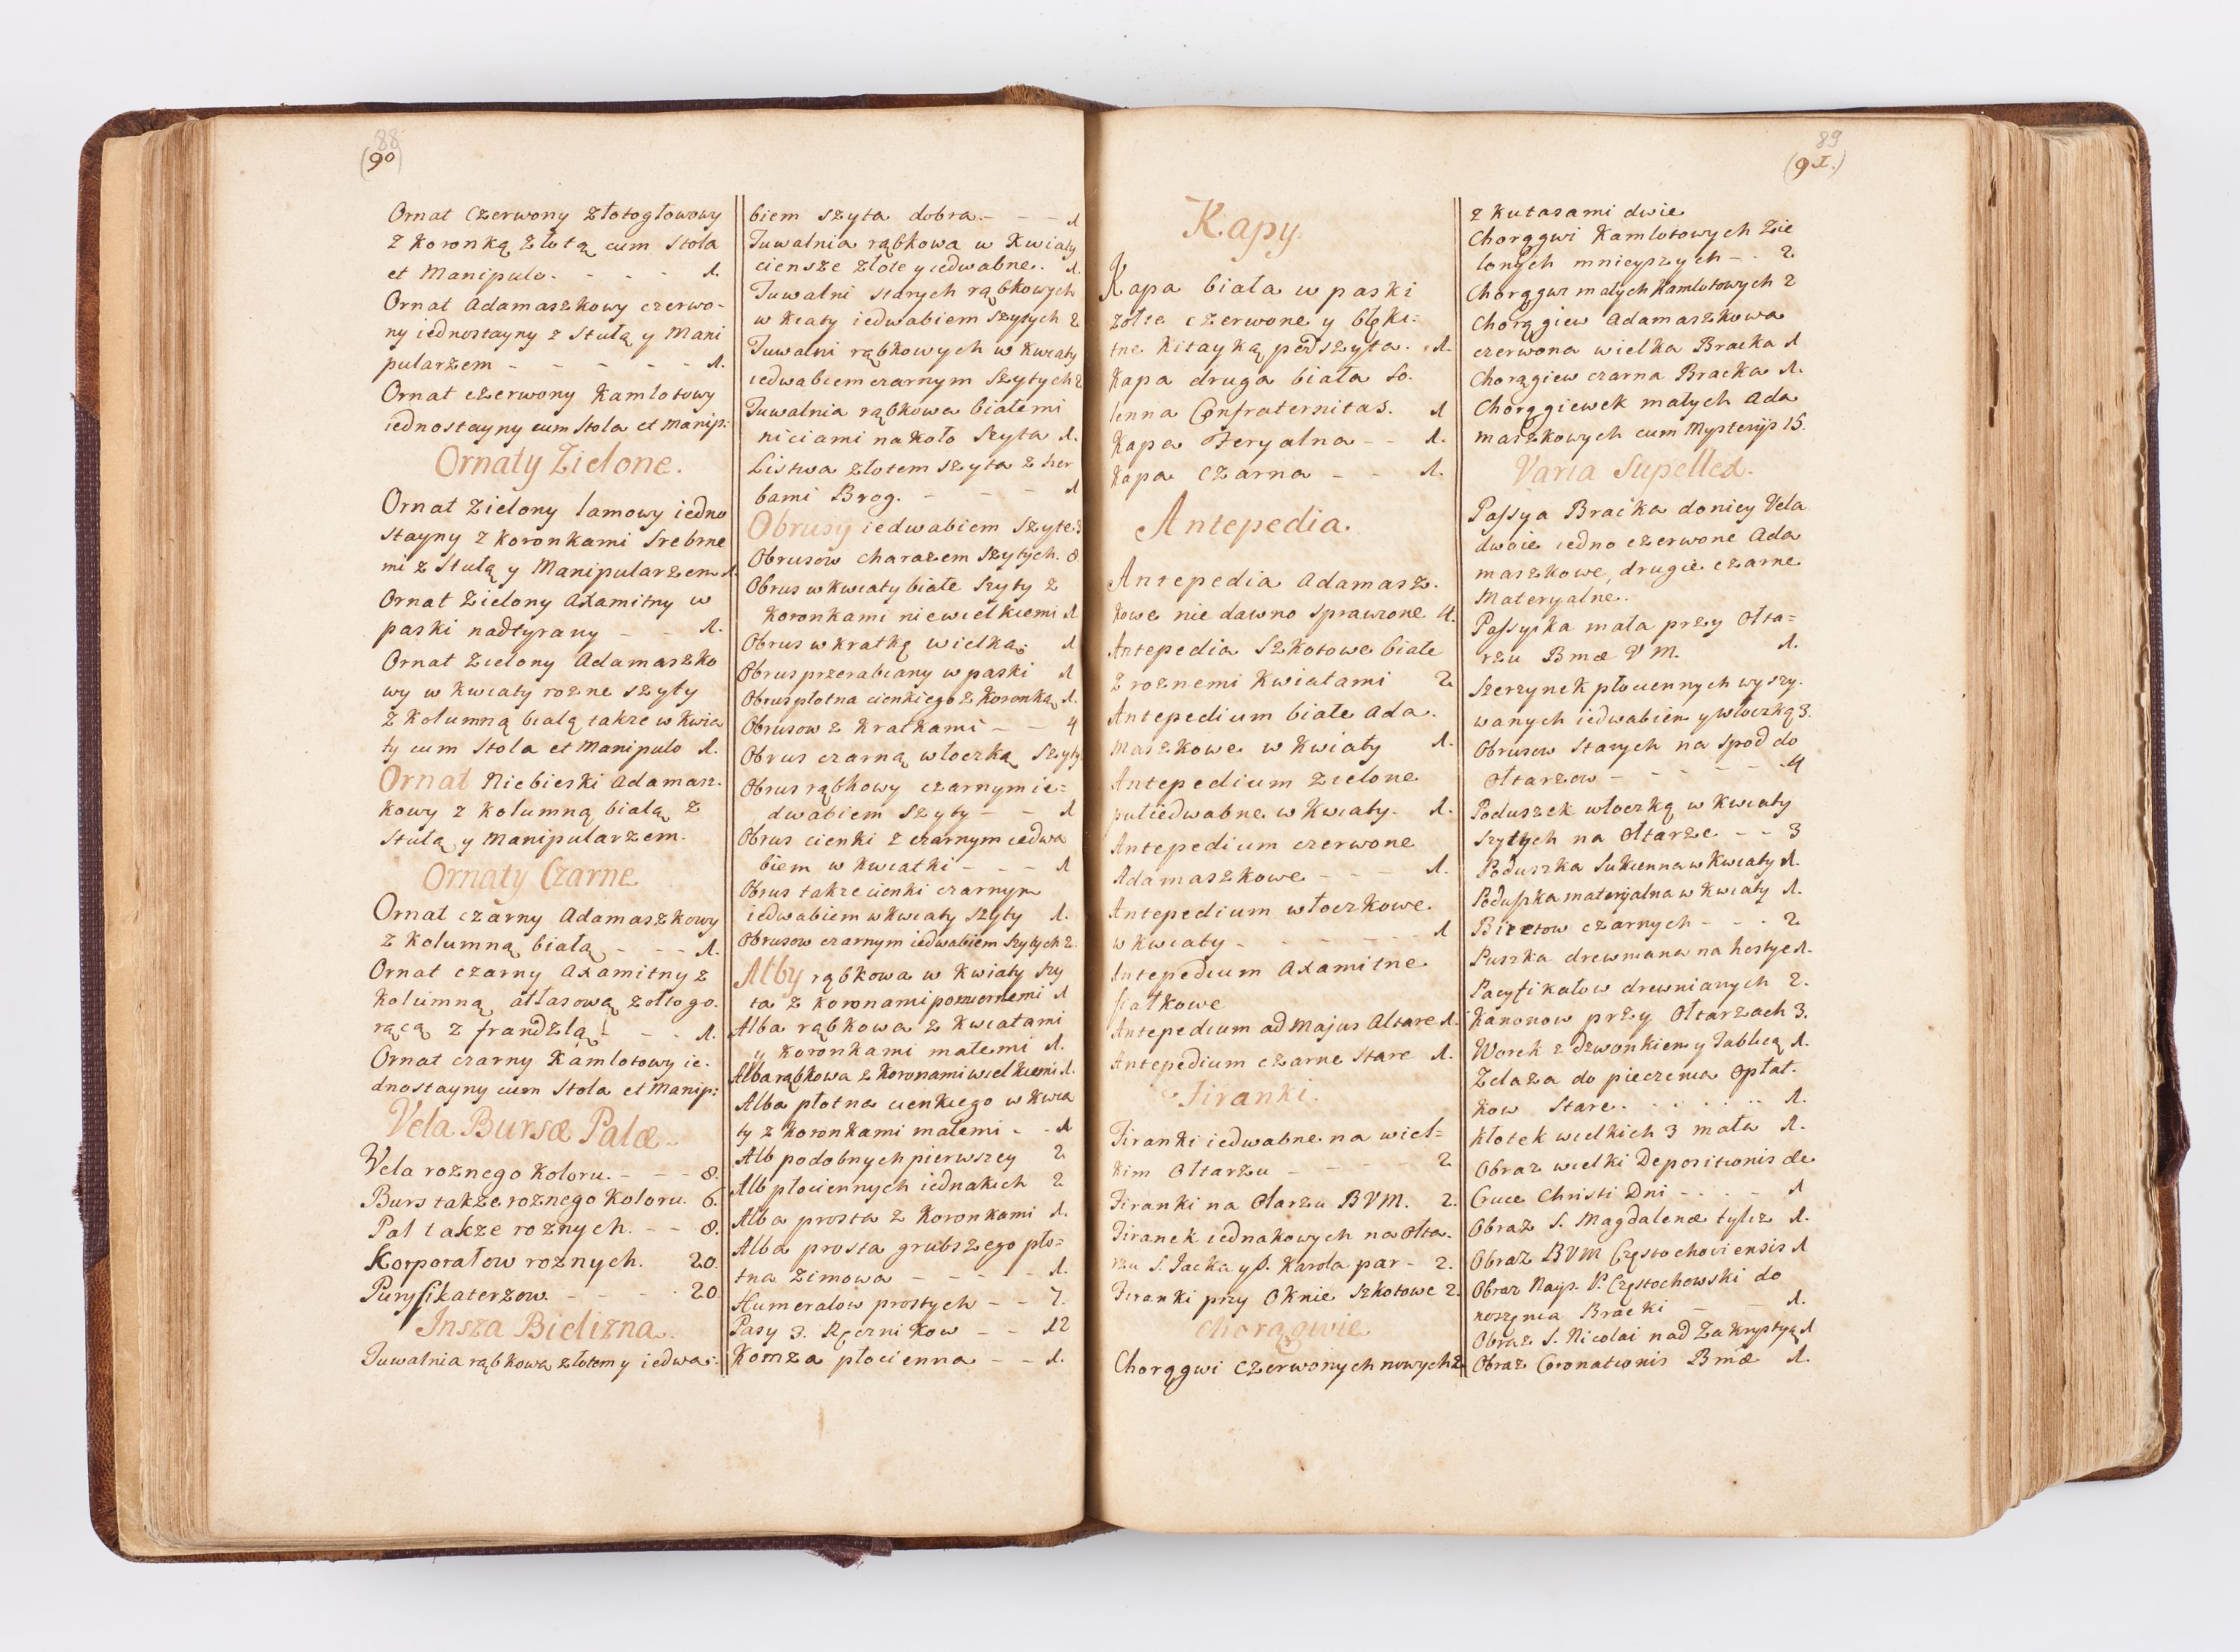 88
(90)
Ornat Czerwony Złotogłowowy
z Koronką złotą cum Stola
et Manipulo. - - - 1.
Ornat Adamaszkowy czerwo-
ny iednostayny z Stułą y Mani
pularzem - - - - - 1.
Ornat czerwony Kamlotowy
iednostayny cum Stola et Manip:
Ornaty Zielone.
Ornat Zielony lamowy iedno
stayny z Koronkami Srebrne
mi z Stułą y Manipularzem 1.
Ornat Zielony Axamitny w
paski nadtyrany - - 1.
Ornat Zielony Adamaszko
wy w Kwiaty rozne szyty
z Kolumną białą takze w Kwia
ty cum Stola et Manipulo 1.
Ornat Niebieski Adamasz-
kowy z Kolumną białą z
Stułą y Manipularzem.
Ornaty Czarne
Ornat czarny Adamaszkowy
z Kolumną białą - - - 1.
Ornat czarny Axamitny z
Kolumną atłasową zołtogo-
rącą z frandzlą - - 1.
Ornat czarny Kamlotowy ie-
dnostayny cum Stola et Manip:
Vela Bursæ Palæ
Vela roznego Koloru. - - - 8.
Burs takze roznego Koloru. 6.
Pal takze roznych. - - 8.
Korporałow roznych. 20.
Puryfikaterzow - - - - 20.
Insza Bielizna.
Tuwalnia rąbkowa złotem y iedwa-
biem szyta dobra. - - - 1
Tuwalnia rąbkowa w Kwiaty
ciensze złote y iedwabne. 1.
Tuwalni starych rąbkowych
w Kiaty iedwabiem Szytych 2
Tuwalni rąbkowych w Kwiaty
iedwabiem czarnym Szytych 2
Tuwalnia rąbkowa białemi
niciami na koło Szyta 1.
Listwa złotem szyta z her
bami Brog. - - - 1
Obrusy iedwabiem Szyte 3
Obrusow charazem Szytych. 8.
Obrus w kwiaty białe Szyty z
Koronkami niewielkiemi 1
Obrus w kratkę wielką. 1
Obrus przerabiany w paski 1
Obrus płotna cienkiego z Koronką 1.
Obrusow z Kratkami - - 4
Obrus czarną włoczką Szyty
Obrus rąbkowy czarnym ie=
dwabiem Szyty - - 1
Obrus cienki z czarnym iedwa
biem w kwiatki - - - 1
Obrus takze cienki czarnym
iedwabiem w kwiaty Szyty 1.
Obrusow czarnym iedwabiem Szytych 2.
Alby rąbkowa w Kwiaty Szy
ta z koronami pozwornemi 1
Alba rąbkowa z Kwiatami
y Koronkami małemi 1.
Alba rąbkowa z Koronami wielkiemi 1.
Alba płotna cienkiego w Kwia
ty z Koronkami małemi - - 1
Alb podobnych pierwszey 2
Alb płociennych iednakich 2
Alba prosta z Koronkami 1.
Alba prosta grubszego pło=
tna Zimowa - - - - - 1.
Humerałow prostych - - 7.
Pasy 3. Ręcznikow - - 12
Komza płocienna - - 1.
89
(91.)
Kapy.
Kapa biała w paski
zołte czerwone y błęki-
tne Kitayką podszyta. 1.
Kapa druga biała So-
lenna Confraternitas. 1
Kapa Feryalna - - 1.
Kapa Czarna - - 1.
Antepedia.
Antepedia Adamasz-
kowe nie dawno Sprawione 4.
Antepedia Szkotowe białe
z roznemi Kwiatami 2
Antepedium białe Ada-
maszkowe w Kwiaty 1.
Antepedium Zielone
puliedwabne w Kwiaty. 1.
Antepedium czerwone
Adamaszkowe - - - 1.
Antepedium włoczkowe
w kwiaty - - - - - 1
Antepedium Axamitne
fiałkowe
Antepedium ad Majus Altare 1.
Antepedium czarne Stare 1.
Firanki.
Firanki iedwabne na wiel=
kim Ołtarzu - - - - - 2
Firanki na Otarzu BVM. 2.
Firanek iednakowych na Ołta-
rzu S. Jacka y S. Karola par - 2.
Firanki przy Oknie Szkotowe 2.
Chorągwie
Chorągwi Czerwonych nowych 2
z kutasami dwie
Chorągwi Kamlotowych Zie
lonych mnieyszych - - 2
Chorągwi małych Kamlotowych 2
Chorągiew Adamaszkowa
czerwona wielka Bracka 1
Chorągiew czarna Bracka 1.
Chorągiewek małych Ada
maszkowych cum Mysterijs 15.
Varia Supellex.
Passya Bracka do niey Vela
dwoie iedno czerwone Ada
maszkowe, drugie czarne
Materyalne.
Passyika mała przy Ołta=
rzu Bmæ VM. 1.
Szerzynek płociennych wyszy-
wanych iedwabiem y włoczką 3.
Obrusow Starych na spod do
Ołtarzow - - - - - 4
Poduszek włoczką w Kwiaty
Szytych na Ołtarze - - 3
Poduszka Sukienna w Kwiaty 1.
Poduszka materyalna w Kwiaty 1.
Biretow czarnych - - - 2
Puszka drewniana na hostye 1.
Pacyfikałow drewnianych 2.
Kanonow przy Ołtarzach 3.
Worek z dzwonkiem y Tablicą 1.
Zelaza do pieczenia opłat-
kow Stare. . . . . . 1.
Kłotek wielkich 3 mała 1.
Obraz wielki Depositionis de
Cruce Christi Dni - - - - 1
Obraz S. Magdalenæ tylez 1.
Obraz BVM Częstochoviensis 1
Obraz Nayś. P. Częstochowski do
noszynia Bracki - - 1.
Obraz S. Nicolai nad Zakrystyą 1
Obraz Coronationis Bmæ 1.